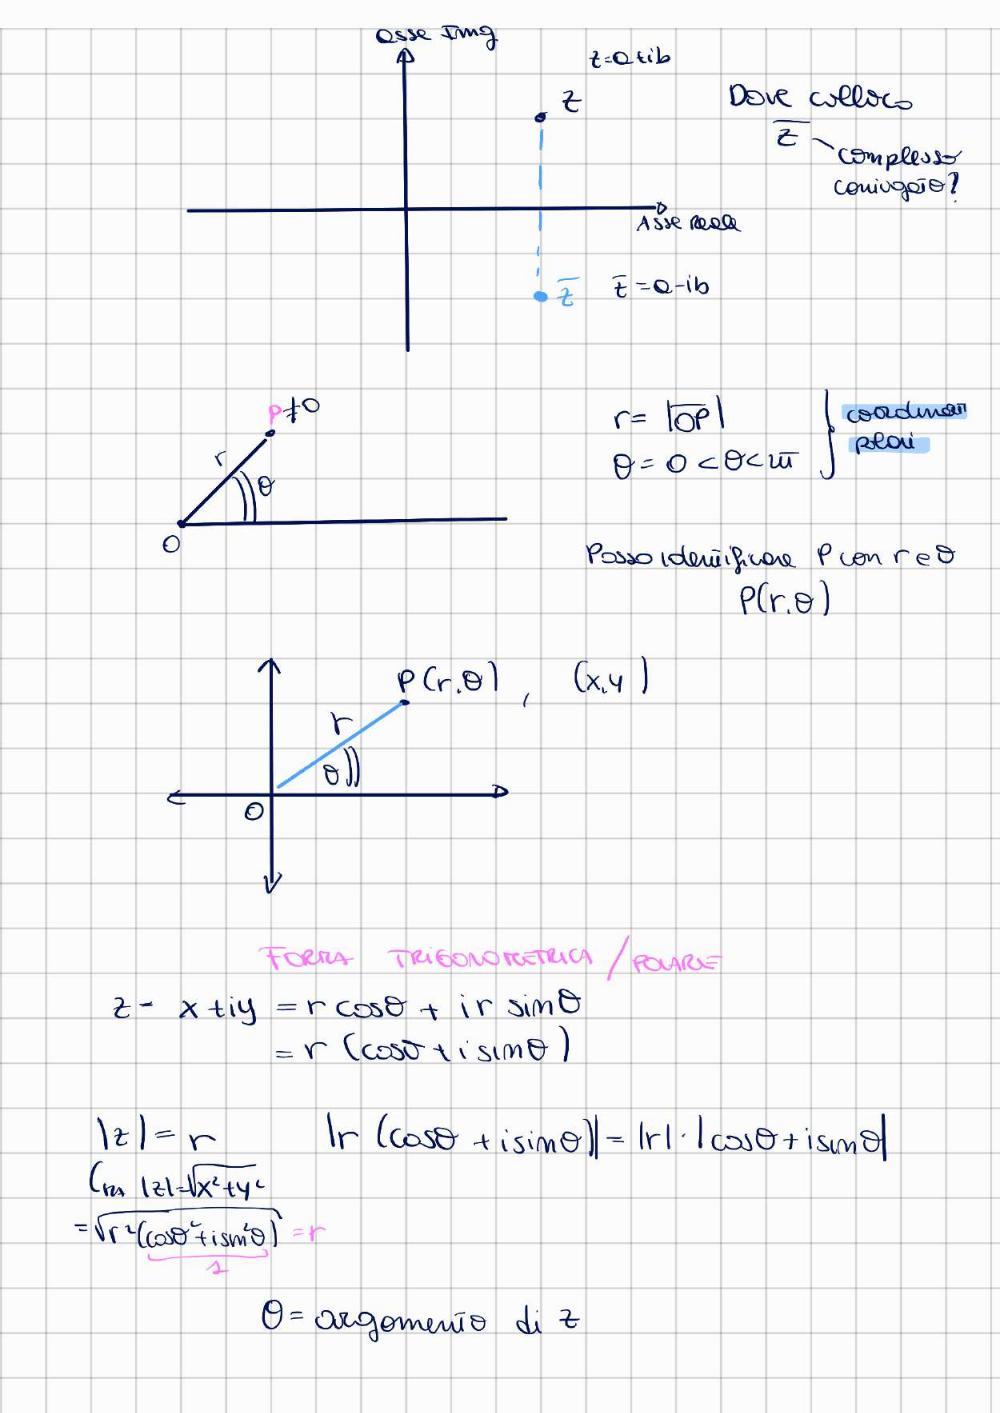 asse Img
z=a+ib
z
Dove colloco
z̅ complesso
coniugato?
Asse reale
z̅
z̅=a-ib
P≠0
r
θ
O
r= |O̅P̅|
θ= 0<θ<2π
coordinate
polari
Posso identificare P con r e θ
P(r,θ)
P(r,θ) , (x,y)
r
θ
O
FORMA TRIGONOMETRICA / POLARE
z- x+iy = r cosθ + i r sinθ
= r (cosθ+i sinθ)
|z|= r
|r (cosθ + i sinθ)| = |r|·|cosθ+i sinθ|
|z|=√x²+y²
=√r²(cosθ²+i sin²θ) =r
1
θ= argomento di z